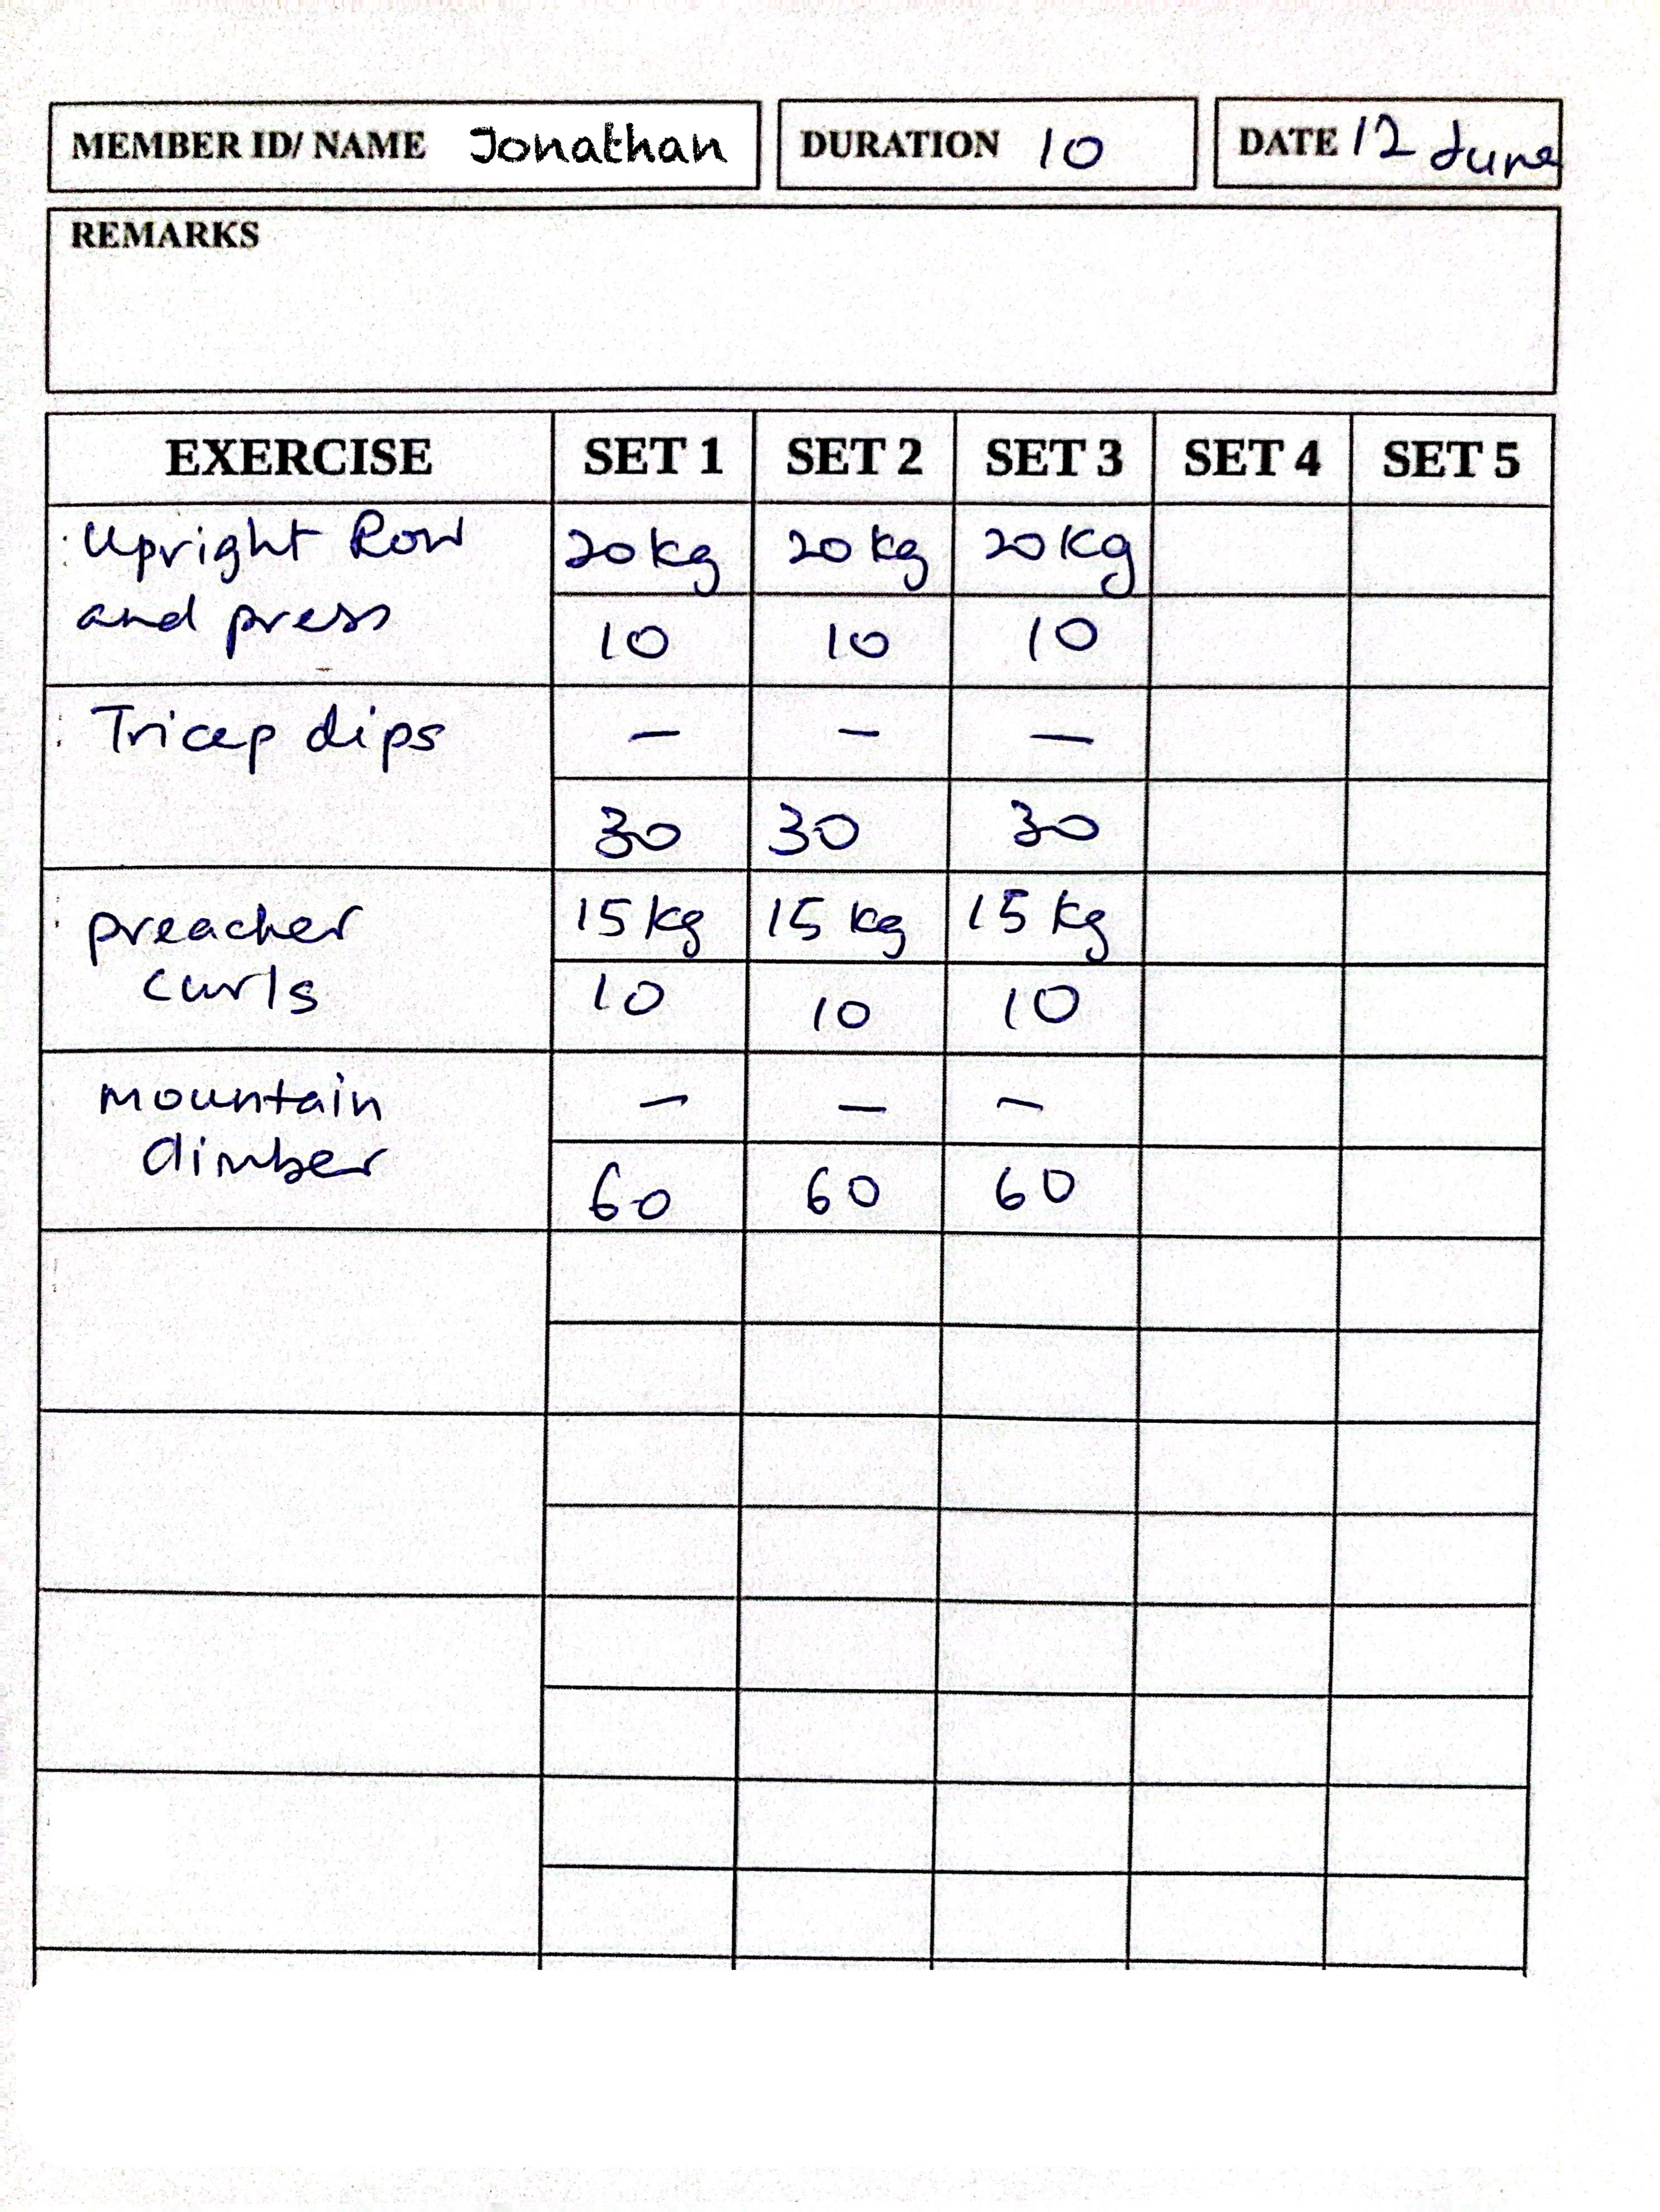 MEMBER ID/ NAME Jonathan DURATION 10 DATE 12 June
REMARKS
EXERCISE SET 1 SET 2 SET 3 SET 4 SET 5
Upright Row 20kg 20kg 20kg
and press 10 10 10
Tricep dips - - -
30 30 30
preacher 15kg 15kg 15kg
curls 10 10 10
mountain - - -
climber 60 60 60